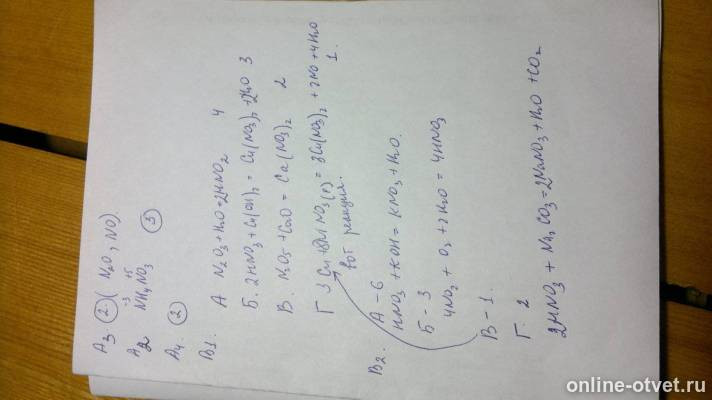 А3. 2 (N2O, NO).
А2 NH4NO3 5
-3 +5
А4. 2
В1. А N2O3 + H2O = 2HNO2 4
Б. 2HNO3 + Cu(OH)2 = Cu(NO3)2 + 2H2O 3
В. N2O5 + CaO = Ca(NO3)2 2
Г 3Cu + 8HNO3(р) = 3Cu(NO3)2 + 2NO + 4H2O
1.
вот реакция.
В2. А - 6
HNO3 + KOH = KNO3 + H2O.
Б - 3
4NO2 + O2 + 2H2O = 4HNO3
В - 1.
Г. 2
2HNO3 + Na2CO3 = 2NaNO3 + H2O + CO2
online-otvet.ru